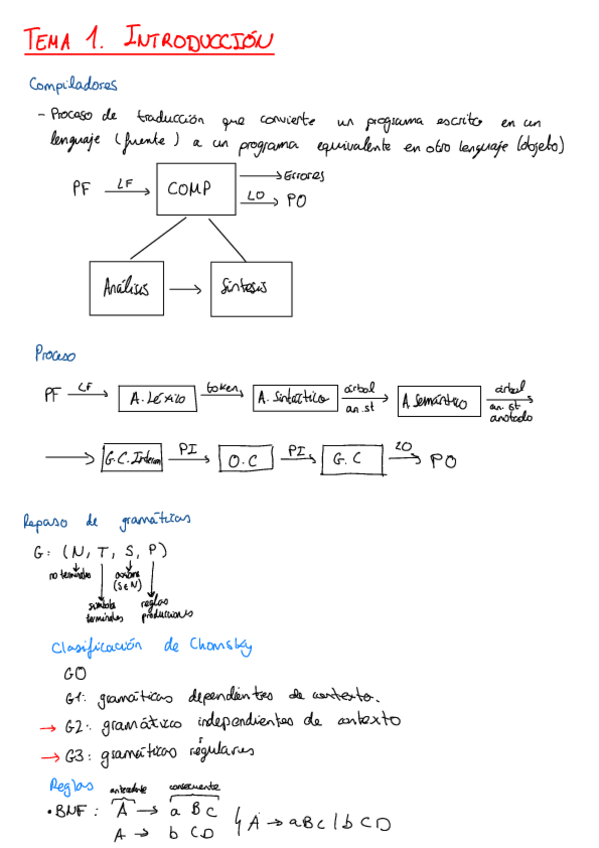 TEMA 1. INTRODUCCIÓN
Compiladores
- Proceso de traducción que convierte un programa escrito en un
lenguaje (fuente) a un programa equivalente en otro lenguaje (objeto)
PF LF COMP Errores
LO PO
Análisis Síntesis
Proceso
PF LF A. Léxico token A. Sintáctico árbol an. st A. Semántico árbol an. st anotado
G.C. Interm PI O.C PI G.C LO PO
Repaso de gramáticas
G: (N, T, S, P)
no terminales axioma (S∈N)
símbolos terminales reglas producciones
Clasificación de Chomsky
G0
G1: gramáticas dependientes de contexto.
→ G2: gramáticas independientes de contexto
→ G3: gramáticas regulares
Reglas antecedente consecuente
• BNF: A → a B c
A → b C D } A → a B c | b C D